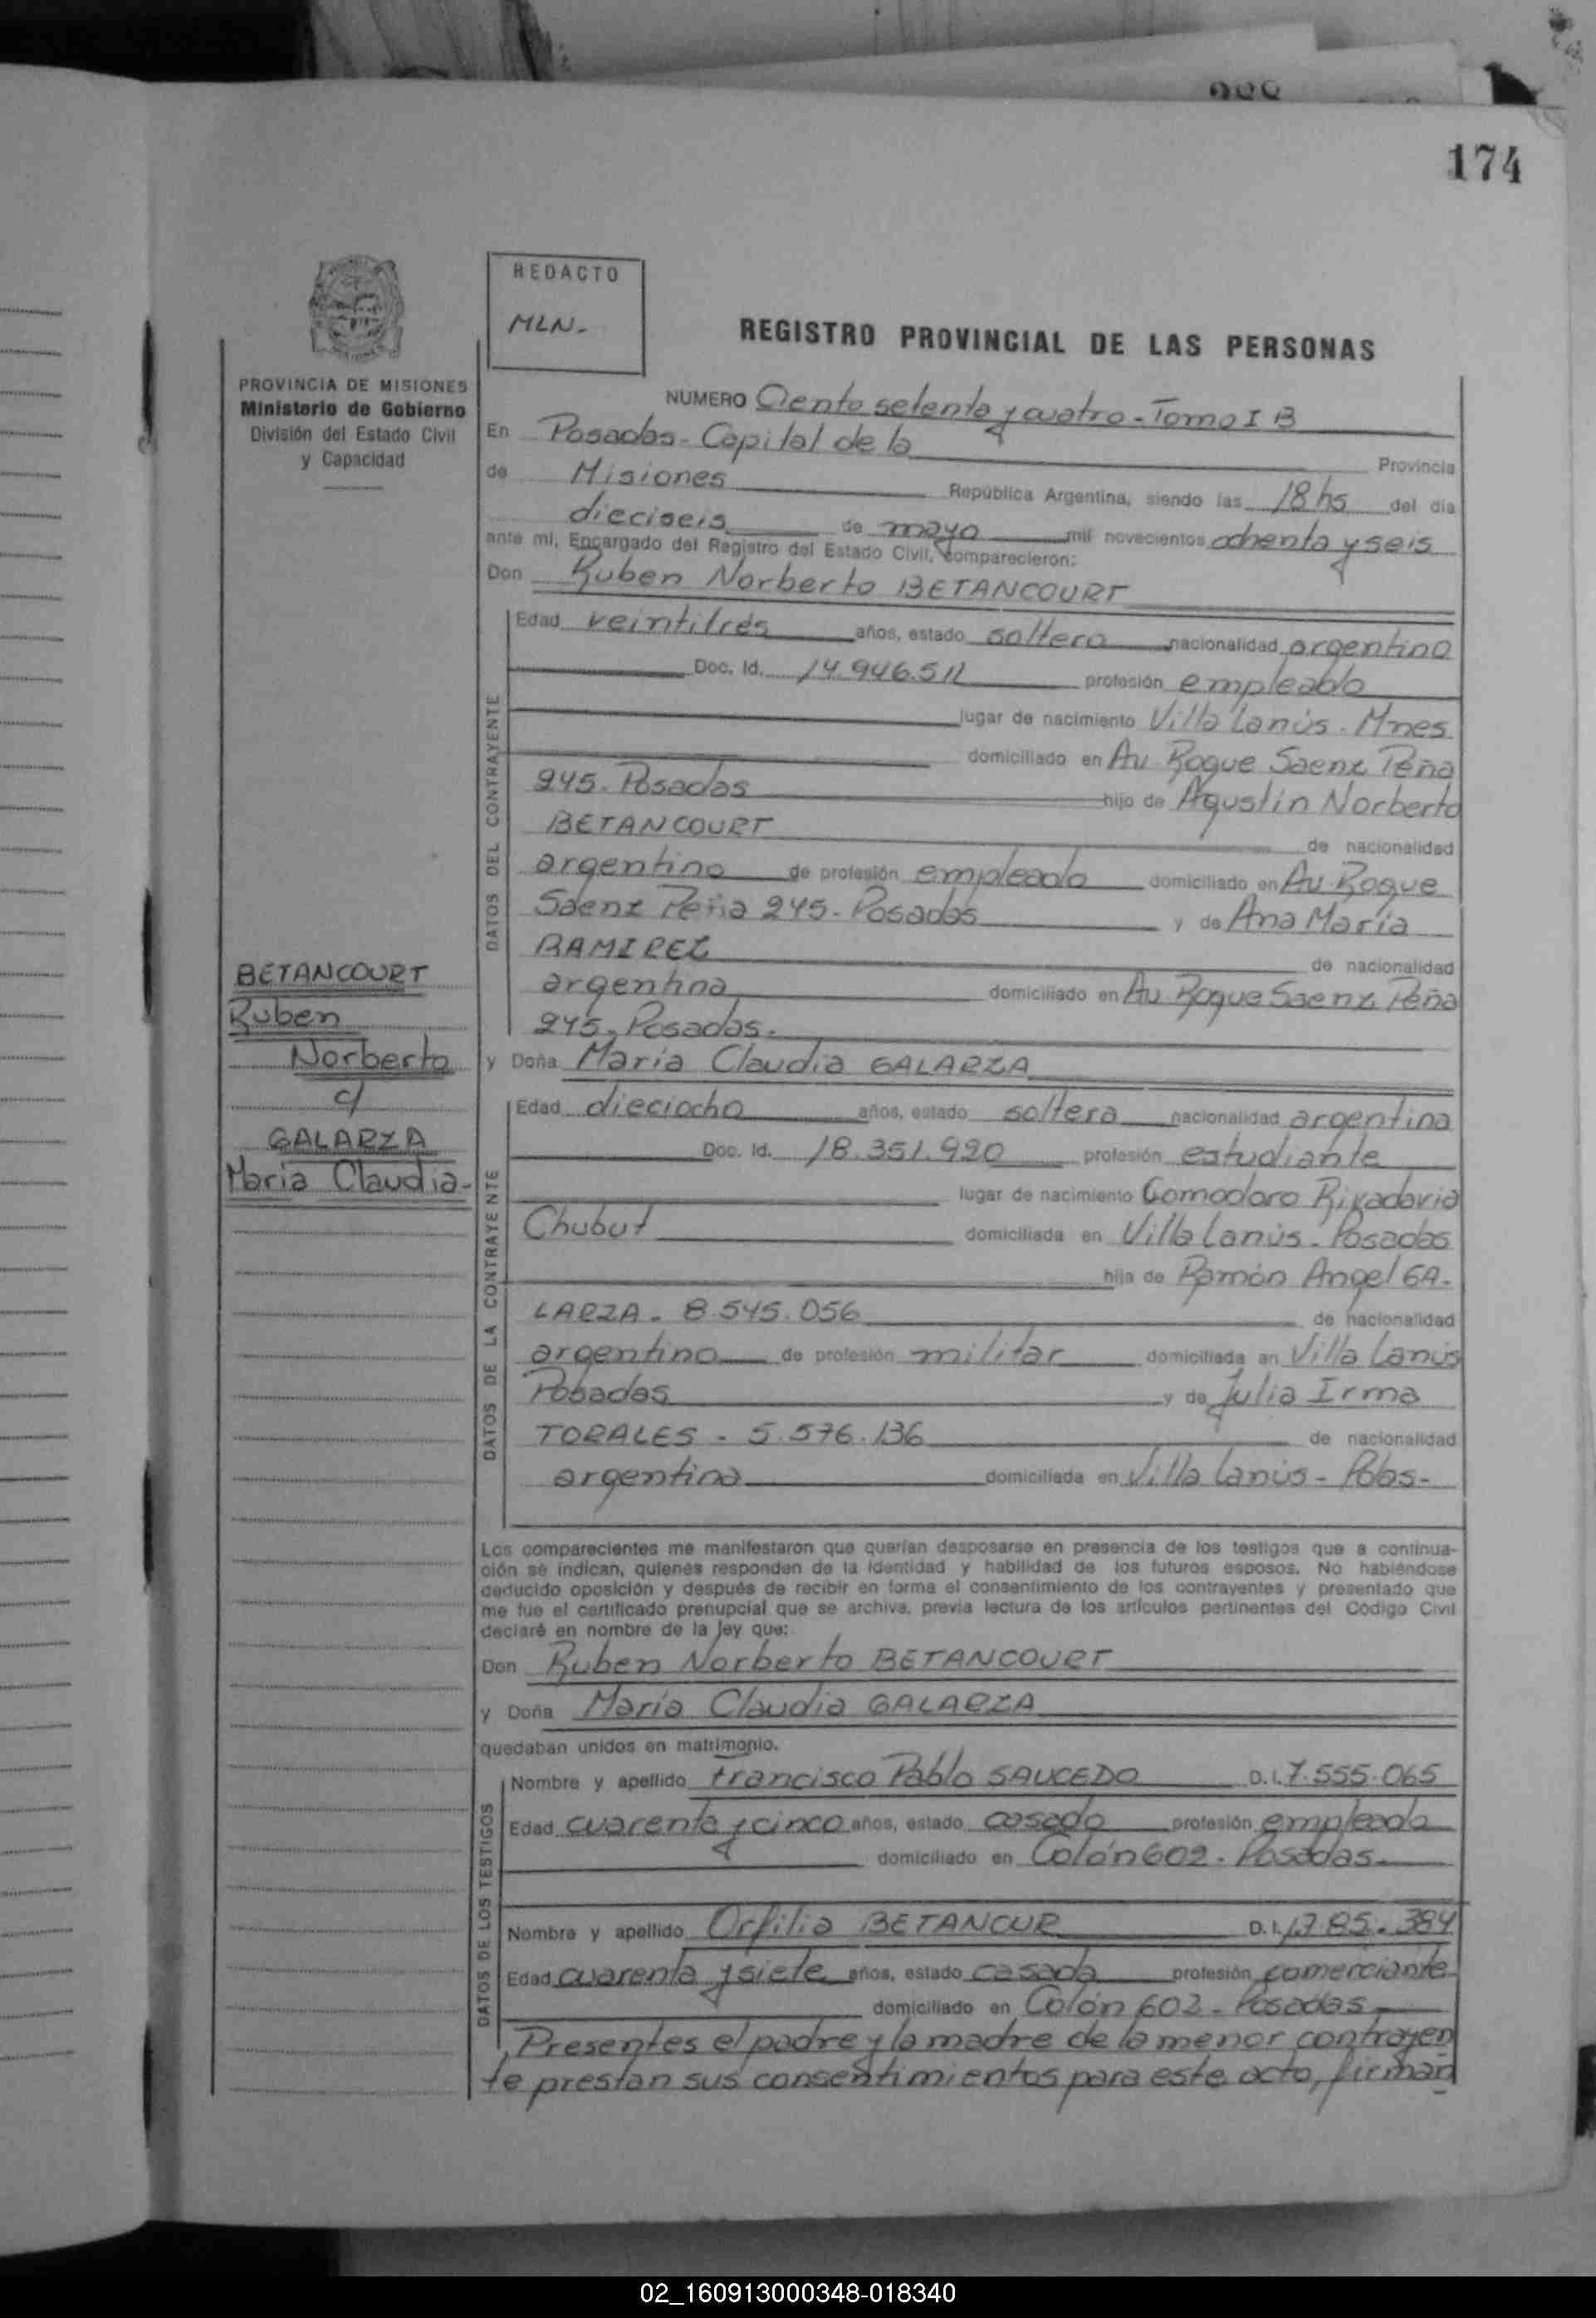 174
REDACTO
MLN-
REGISTRO PROVINCIAL DE LAS PERSONAS
PROVINCIA DE MISIONES
Ministerio de Gobierno
División del Estado Civil
y Capacidad
NUMERO Ciento setenta y cuatro - Tomo I B
En Posadas - Capital de la Provincia
de Misiones República Argentina, siendo las 18 hs del día
dieciseis de mayo mil novecientos ochenta y seis
ante mí, Encargado del Registro del Estado Civil, comparecieron:
Don Ruben Norberto BETANCOURT
DATOS DEL CONTRAYENTE
Edad veintitrés años, estado soltero nacionalidad argentino
Doc. Id. 14.946.511 profesión empleado
lugar de nacimiento Villa Lanús - Mnes.
domiciliado en Av Roque Saenz Peña
245 - Posadas hijo de Agustin Norberto
BETANCOURT de nacionalidad
argentino de profesión empleado domiciliado en Av. Roque
Saenz Peña 245 - Posadas y de Ana María
RAMIREZ de nacionalidad
argentina domiciliado en Av Roque Saenz Peña
245 - Posadas.
BETANCOURT
Ruben
Norberto
c/
GALARZA
Maria Claudia-
y Doña María Claudia GALARZA
DATOS DE LA CONTRAYENTE
Edad dieciocho años, estado soltera nacionalidad argentina
Doc. Id. 18.351.920 profesión estudiante
lugar de nacimiento Comodoro Rivadavia
Chubut domiciliada en Villa Lanús - Posadas
hija de Ramón Angel GA-
LARZA - 8.545.056 de nacionalidad
argentino de profesión militar domiciliada en Villa Lanús
Posadas y de Julia Irma
TORALES - 5.576.136 de nacionalidad
argentina domiciliada en Villa Lanús - Pdas-
Los comparecientes me manifestaron que querían desposarse en presencia de los testigos que a continua-
ción se indican, quienes responden de la identidad y habilidad de los futuros esposos. No habiéndose
deducido oposición y después de recibir en forma el consentimiento de los contrayentes y presentado que
me fue el certificado prenupcial que se archiva, previa lectura de los artículos pertinentes del Código Civil
declaré en nombre de la ley que:
Don Ruben Norberto BETANCOURT
y Doña María Claudia GALARZA
quedaban unidos en matrimonio.
DATOS DE LOS TESTIGOS
Nombre y apellido Francisco Pablo SAUCEDO D.I. 7.555.065
Edad cuarenta y cinco años, estado casado profesión empleado
domiciliado en Colón 602 - Posadas
Nombre y apellido Orfilia BETANCUR D.I.
Edad cuarenta y siete años, estado casada profesión comerciante
domiciliado en Colón 602 - Posadas
Presentes el padre y la madre de la menor contrayen
te prestan sus consentimientos para este acto, firman
02_160913000348-018340